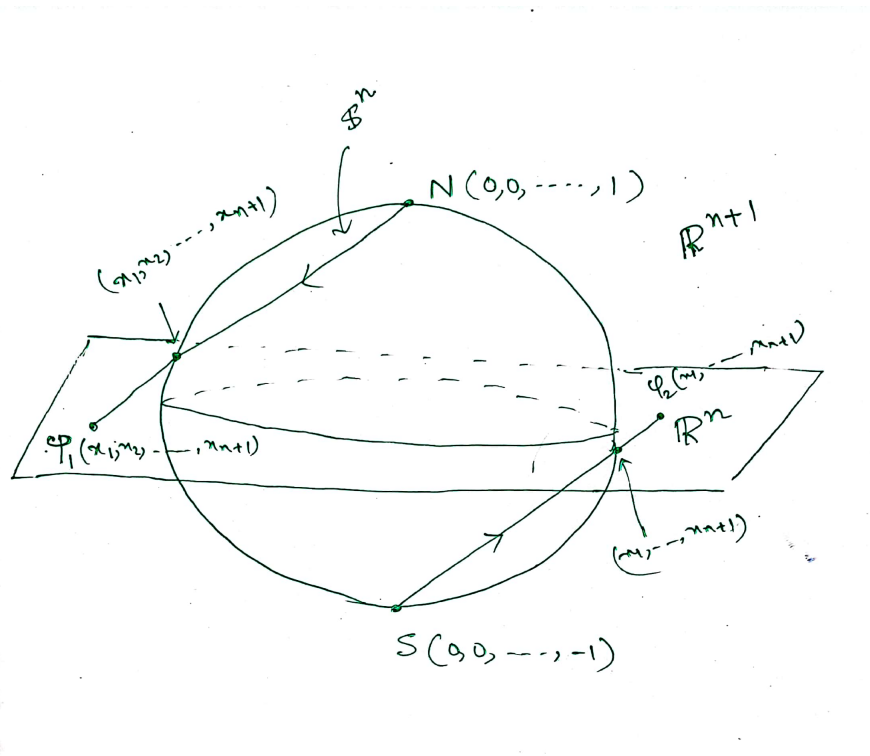 𝕊ⁿ
N (0,0, ----, 1)
(x₁,x₂, ---, xₙ₊₁)
ℝⁿ⁺¹
φ₂(x₁, -- xₙ₊₁)
ℝⁿ
φ₁(x₁,x₂, ---, xₙ₊₁)
(x₁,--, xₙ₊₁)
S (0,0, ---, -1)